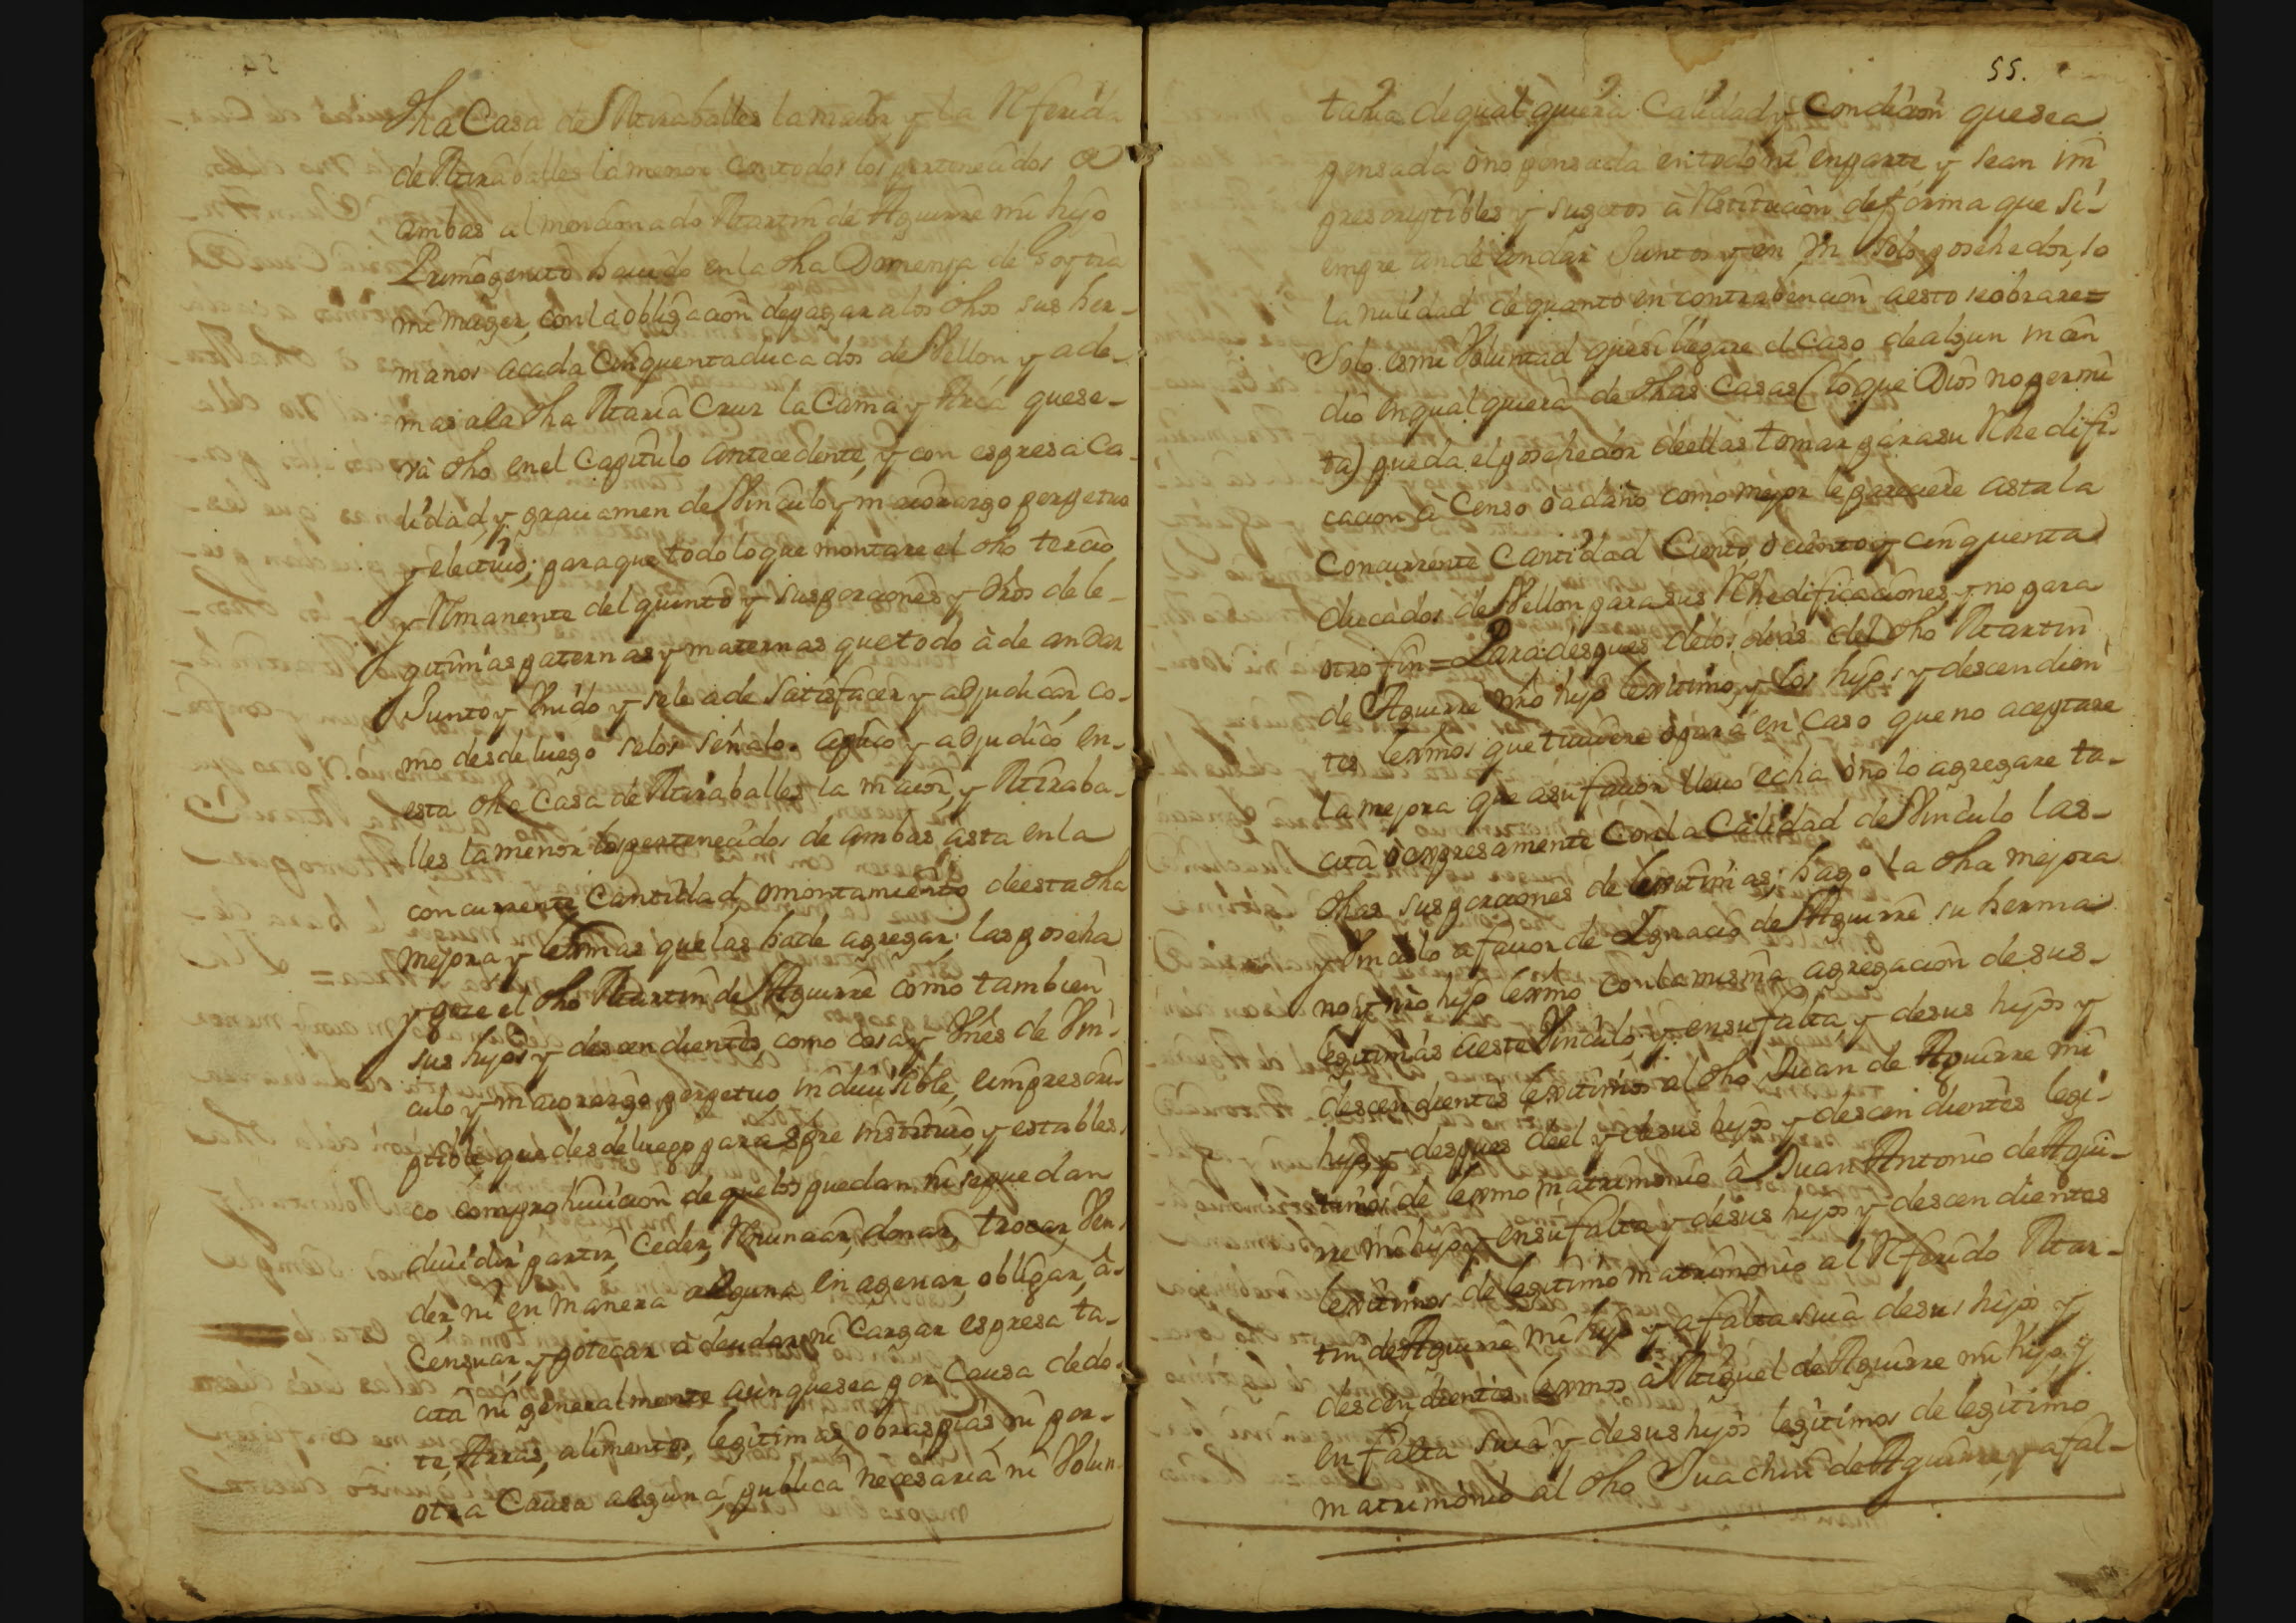 dha Casa de Miraballes la maior y la Referida
de Miraballes la menor con todos los pertenecidos de
ambas al mencionado Martin de Aguirre mi hijo
Primogenito havido en la dha Domenja de Goytia
mi muger, con la obligacion de pagar a los dhos sus her-
manos acada Cinquenta ducados de Vellon y ade-
mas a la dha Maria Cruz la Cama y Arca que se-
rà dho en el Capitulo antecedente, y con espresa Ca-
lidad, y gravamen de Vinculo y maiorazgo perpetuo
y electivo; para que todo lo que montare el dho tercio
y Remanente del quinto y sus porciones y dros de le-
gitimas paternas y maternas que todo à de andar
Junto y Unido y se le a de Satisfacer y adjudicar co-
mo desde luego se los señalo, aplico y adjudico en-
esta dha Casa de Miraballes la maior, y Miraba-
lles la menor los pertenecidos de ambas asta en la
concurrente Cantidad, o montamiento de esta dha
mejora y lexmas que las ha de agregar; las poseha
y goze el dho Martin de Aguirre como tambien
sus hijos y descendientes, como cosa y Vnes de Vin-
culo y maiorazgo perpetuo indivisible, e impresori-
ptible, que desde luego para spre instituio, y establez-
co con prohivicion de que los puedan ni se puedan
dividir partir, Ceder, Renunciar, donar, trocar, Ven-
der ni en manera alguna en agenar, obligar, à
Censuar, ypotecar à deudar, ni Cargar espresa ta-
cita ni generalmente aunque sea por Causa de do-
te, Arras, alimentos, legitimas, obras pias, ni por-
otra Causa alguna, publica necesaria ni Volun-
55.
taria de qual quiera Calidad y Condicion que sea
pensada ò no pensada en todo ni en parte y sean im
prescriptibles y sugetos à Restitucion de forma que si-
empre an de andar Juntos y en Vn solo posehedor, so
la nulidad de quanto en contrabencion aesto se obrare=
Solo es mi Voluntad que si llegare el Caso de algun incen
dio en qual quiera de dhas Casas (lo que Dios no permi
ta) pueda el posehedor de ellas tomar para su Rhedifi-
cacion à Censo ò a daño como mejor le pareciere asta la
Concurrente Cantidad Ciento, o ciento y cinquenta
ducados de Vellon para sus Rhedificaciones, y no para
otro fin= Para despues de los dias del dho Martin
de Aguirre mio hijo lexitimo, y los hijos y descendien
tes lexmos que tuviere ò para en Caso que no aceptare
la mejora que a su favor llevo echa ò no lo agregare ta-
cita ò expresamente Con la Calidad de Vinculo las-
dhas sus porciones de lexitimas; hago la dha mejora
y Vinculo a favor de Ygnacio de Aguirre su herma
no y mio hijo lexmo con la misma agregacion de sus-
legitimas a este Vinculo y en su falta, y de sus hijos y
descendientes lexitimos al dho Juan de Aguirre mi
hijo, y despues de el y de sus hijos y descendientes legi-
timos de lexmo matrimonio â Juan Antonio de Agui-
rre mi hijo y en su falta y de sus hijos y descendientes
lexitimos de legitimo matrimonio al Referido Mar-
tin de Aguirre mi hijo y a falta suia de sus hijos y
descendientes lexmos à Miguel de Aguirre mi hijo y
en falta suia y de sus hijos legitimos de legitimo
matrimonio al dho Juachin de Aguirre, y a fal-